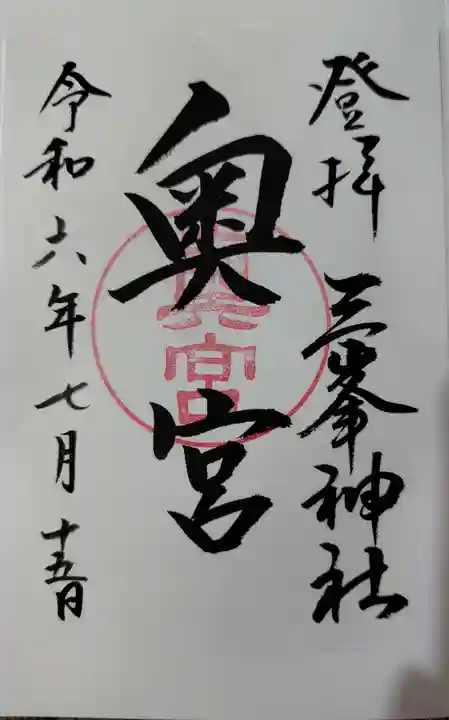 登拝 三峯神社
奥宮
奥宮
令和六年七月十五日